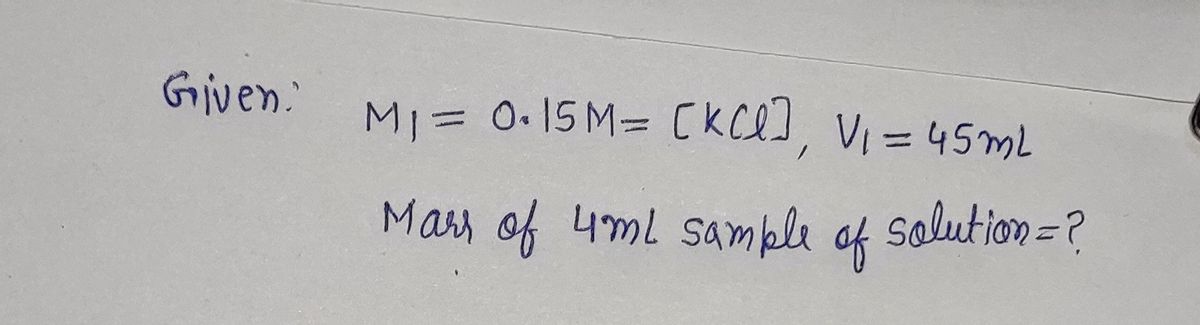 Given:
M₁ = 0.15 M = [KCl], V₁ = 45 mL
Mass of 4mL sample of solution = ?